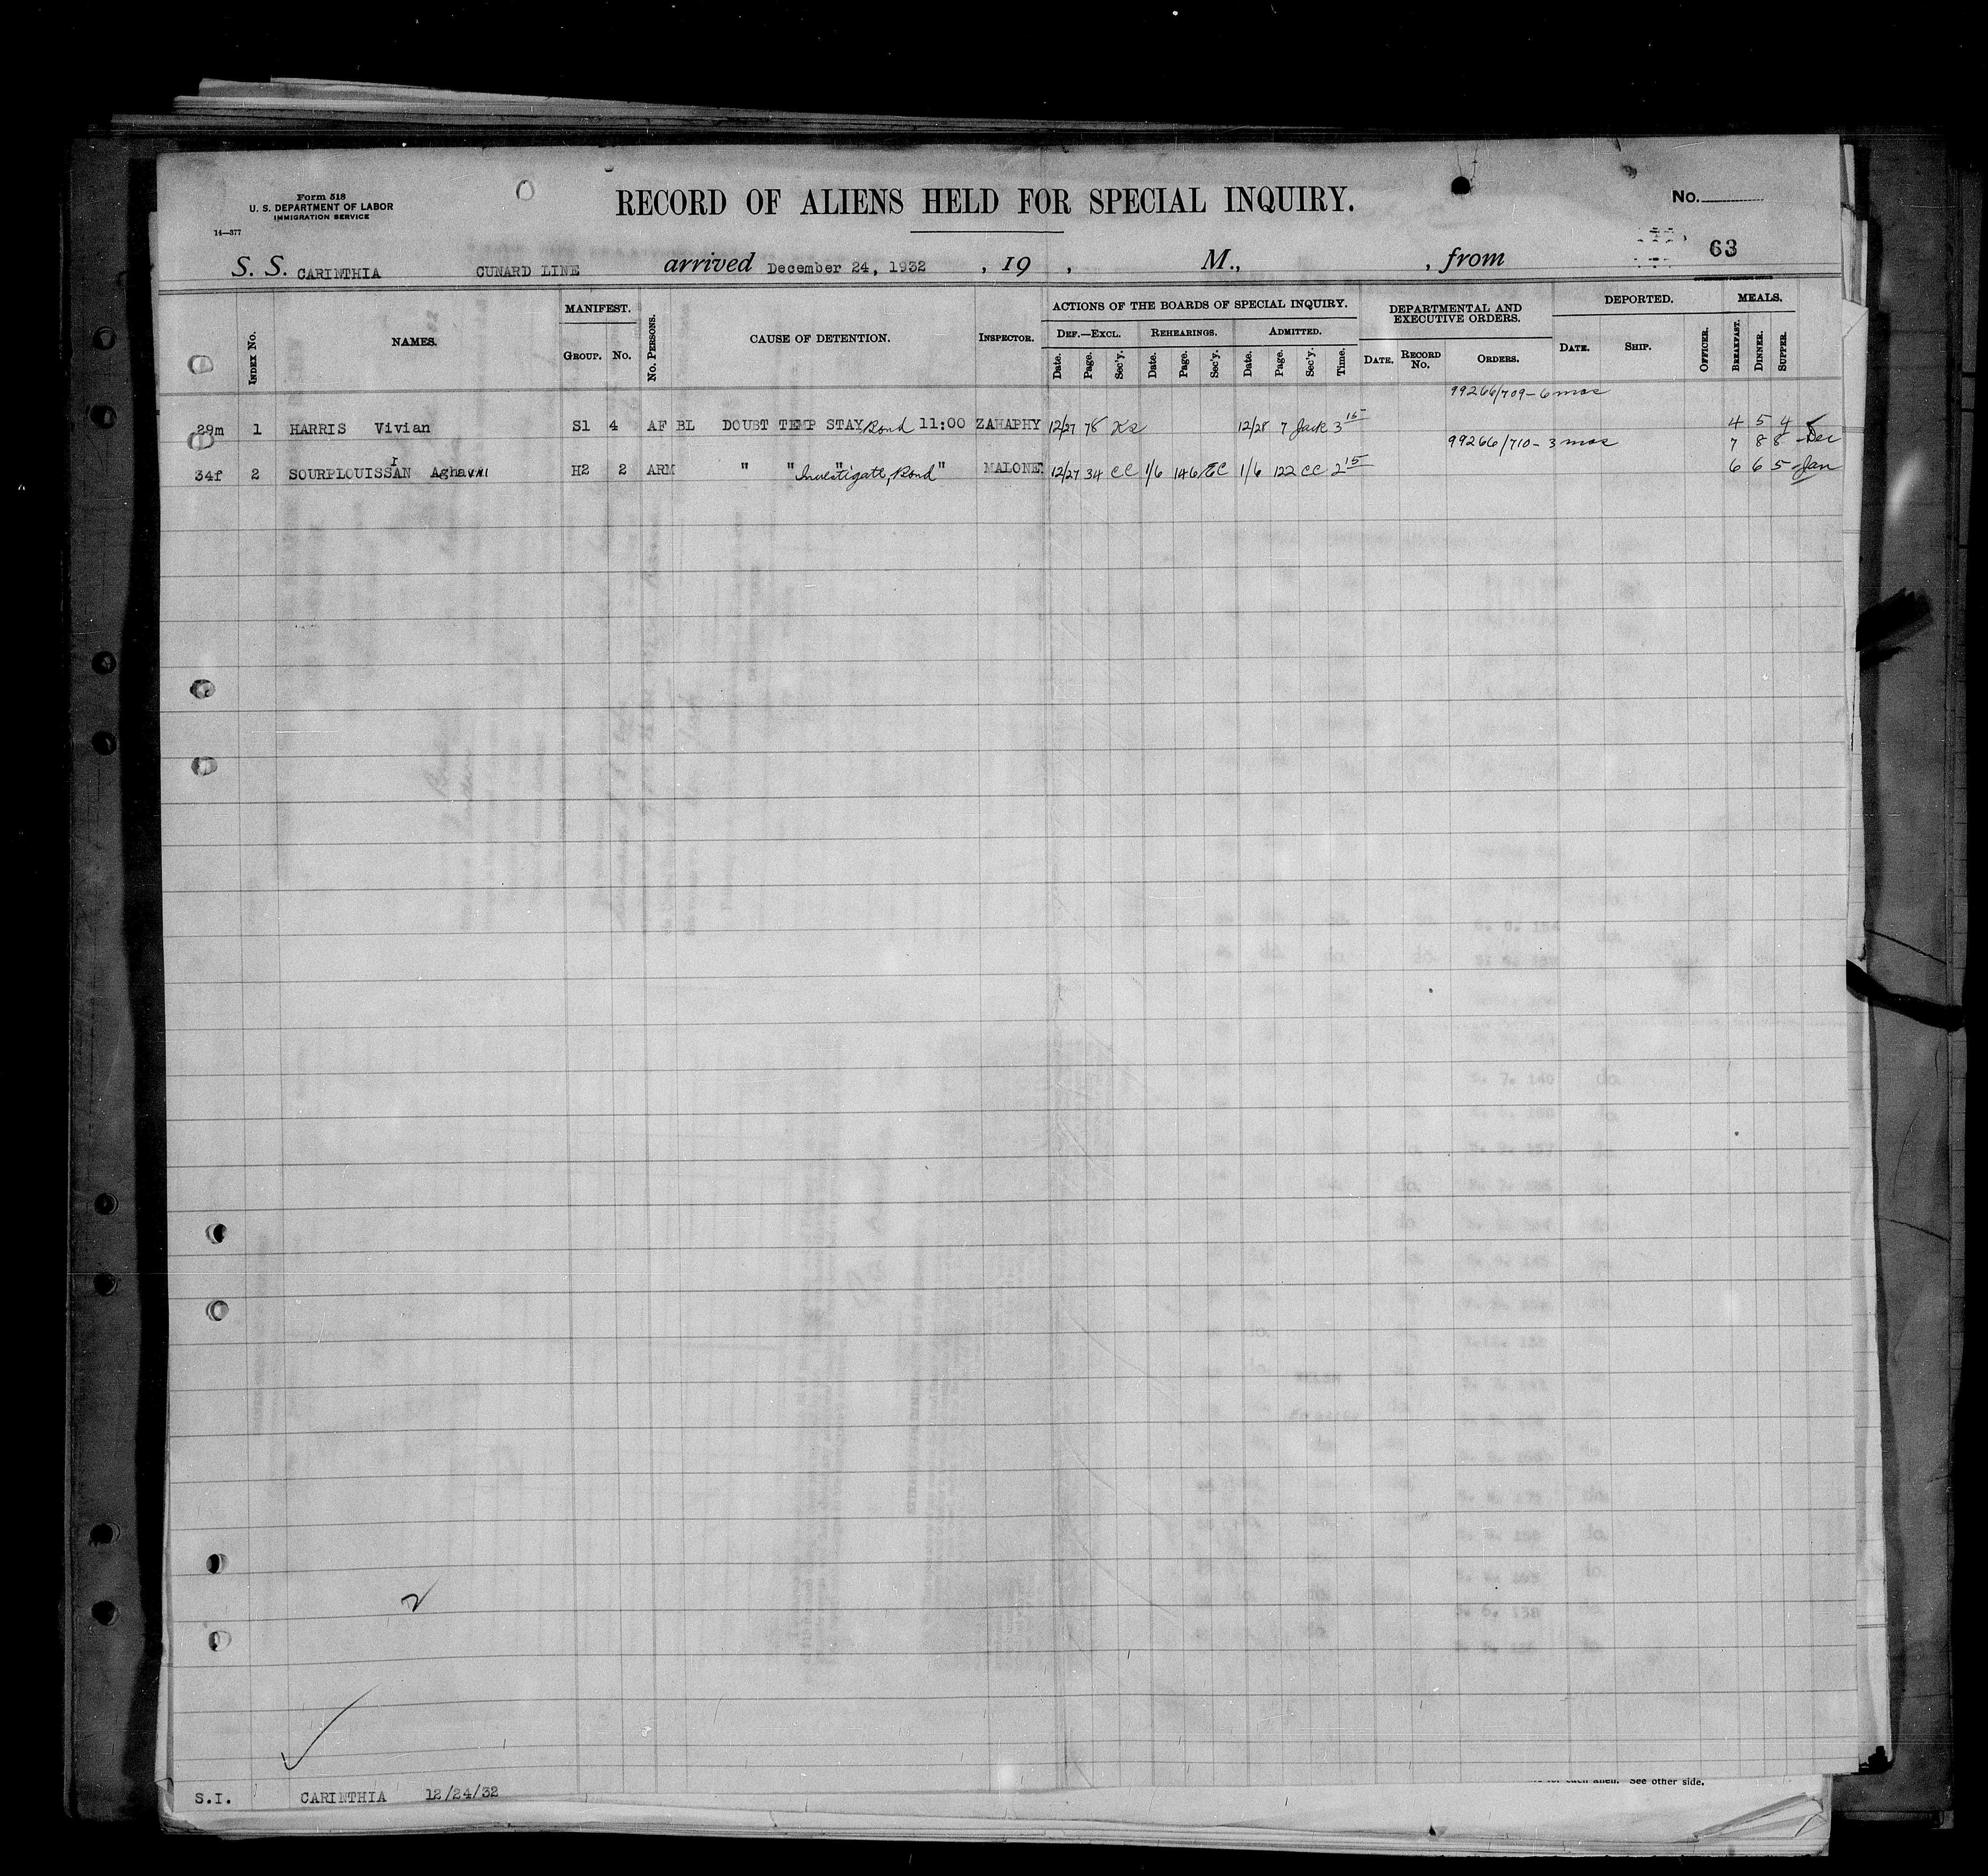 Form 518
U. S. DEPARTMENT OF LABOR
IMMIGRATION SERVICE
14—377
RECORD OF ALIENS HELD FOR SPECIAL INQUIRY.
No.
63
S. S. CARINTHIA CUNARD LINE arrived December 24, 1932 , 19 , M., , from
INDEX No. NAMES. MANIFEST. GROUP. No. No. PERSONS. CAUSE OF DETENTION. INSPECTOR. ACTIONS OF THE BOARDS OF SPECIAL INQUIRY. DEF.—EXCL. Date. Page. Sec'y. REHEARINGS. Date. Page. Sec'y. ADMITTED. Date. Page. Sec'y. Time. DEPARTMENTAL AND EXECUTIVE ORDERS. DATE. RECORD No. ORDERS. DEPORTED. DATE. SHIP. OFFICER. MEALS. BREAKFAST. DINNER. SUPPER.
99266/709 - 6 mos
29m 1 HARRIS Vivian S1 4 AF BL DOUBT TEMP STAY Bond 11:00 ZAHAPHY 12/27 78 12/28 7 Jack 3 15 4 5 4
99266/710 - 3 mos 7 8 8 - Dec
34f 2 SOURPLOUISSAN Aghavni H2 2 ARM " " " Investigate, Bond " MALONE 12/27 34 CC 1/6 146 CC 1/6 122 CC 2 15 6 6 5 - Jan
2
for each alien. See other side.
S.I. CARINTHIA 12/24/32